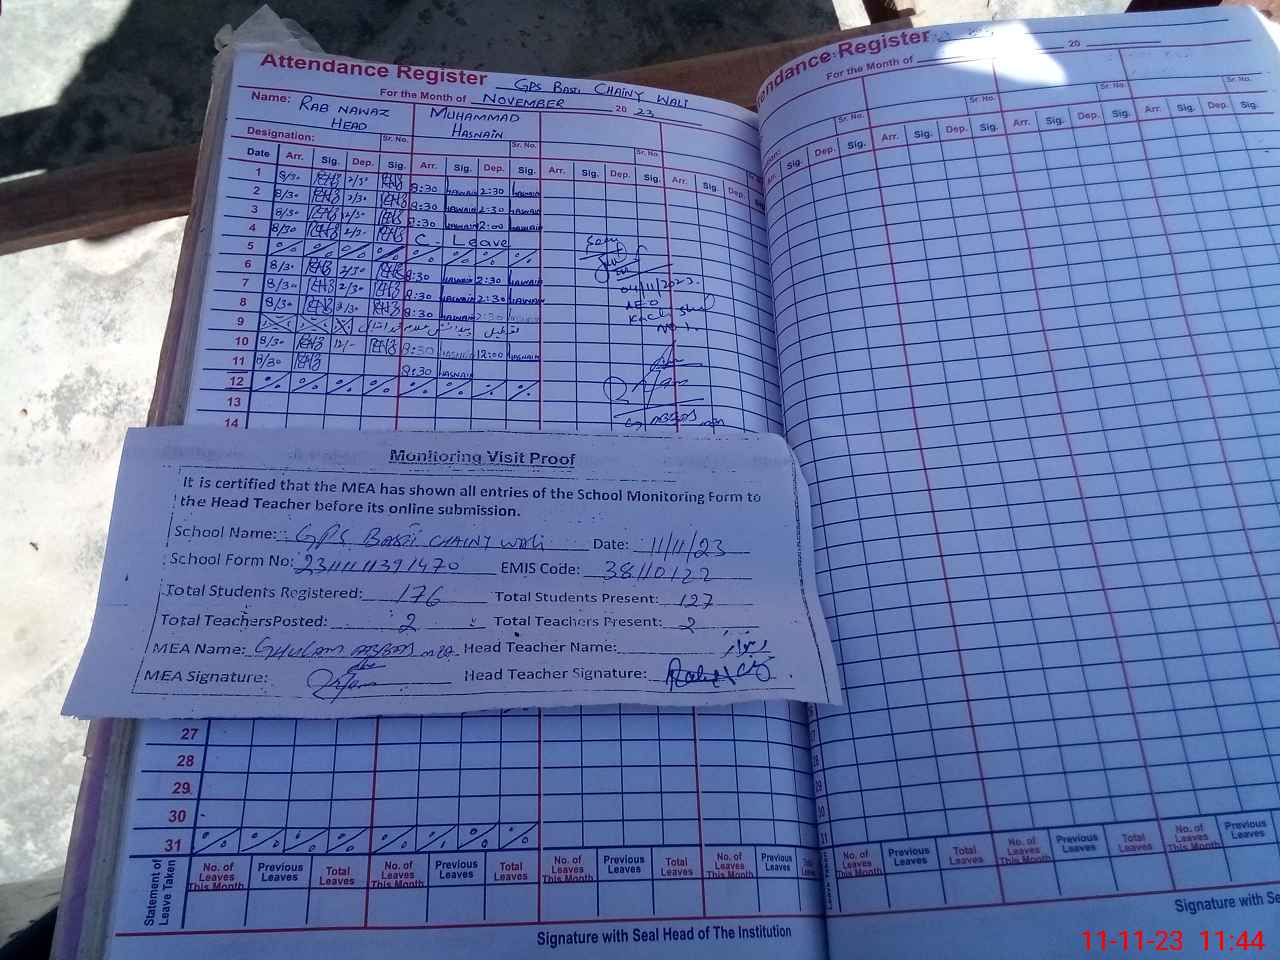 Attendance Register
GPS Basti Chainy Wali
For the Month of NOVEMBER 2023
Name: RAB NAWAZ HEAD
MUHAMMAD HASNAIN
Designation: Sr. No. Sr. No. Sr. No.
Date Arr. Sig. Dep. Sig. Arr. Sig. Dep. Sig. Arr. Sig. Dep. Sig. Arr. Sig. Dep.
1 8/30 2/30 8:30 HASNAIN 2:30 HASNAIN
2 8/30 2/30 8:30 HASNAIN 2:30 HASNAIN
3 8/30 2/30 8:30 HASNAIN 2:00 HASNAIN
4 8/30 2/30 C. Leave
5
6 8/30 2/30 8:30 HASNAIN 2:30 HASNAIN
7 8/30 2/30 8:30 HASNAIN 2:30 HASNAIN
8 8/30 2/30 8:30 HASNAIN 2:30 HASNAIN
9 تعطیل
10 8/30 12/- 8:30 HASNAIN 12:00 HASNAIN
11 8/30 8:30 HASNAIN
12
13
14
04/11/2023.
AEO
No 1.
Monitoring Visit Proof
It is certified that the MEA has shown all entries of the School Monitoring Form to
the Head Teacher before its online submission.
School Name: GPS Basti CHAINY Wali Date: 11/11/23
School Form No: EMIS Code: 38110122
Total Students Registered: 176 Total Students Present: 127
Total TeachersPosted: 2 Total Teachers Present: 2
MEA Name: GHULAM ABBAS MEA Head Teacher Name:
MEA Signature: Head Teacher Signature:
27
28
29
30
31
Statement of Leave Taken
No. of Leaves This Month Previous Leaves Total Leaves No. of Leaves This Month Previous Leaves Total Leaves No. of Leaves This Month Previous Leaves Total Leaves No. of Leaves This Month Previous Leaves
Signature with Seal Head of The Institution
endance Register
For the Month of 20
Sr. No. Sr. No. Sr. No. Sr. No.
Arr. Sig. Dep. Sig. Arr. Sig. Dep. Sig. Arr. Sig. Dep. Sig. Arr. Sig. Dep. Sig.
No. of Leaves This Month Previous Leaves Total Leaves No. of Leaves This Month Previous Leaves Total Leaves No. of Leaves This Month Previous Leaves
Signature with Se
11-11-23 11:44